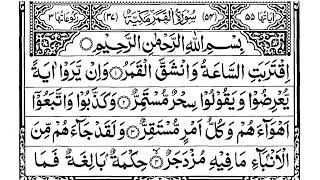 اٰيَاتُهَا ۵۵ (۵۴) سُوْرَةُ الْقَمَرِ مَكِّيَّةٌ (۳۷) رُكُوْعَاتُهَا ۳
بِسْمِ اللّٰهِ الرَّحْمٰنِ الرَّحِيْمِ
اِقْتَرَبَتِ السَّاعَةُ وَانْشَقَّ الْقَمَرُ ۱ وَاِنْ يَّرَوْا اٰيَةً
يُّعْرِضُوْا وَيَقُوْلُوْا سِحْرٌ مُّسْتَمِرٌّ ۲ وَكَذَّبُوْا وَاتَّبَعُوْٓا
اَهْوَآءَهُمْ وَكُلُّ اَمْرٍ مُّسْتَقِرٌّ ۳ وَلَقَدْ جَآءَهُمْ مِّنَ
الْاَنْۢبَآءِ مَا فِيْهِ مُزْدَجَرٌ ۴ حِكْمَةٌۢ بَالِغَةٌ فَمَا